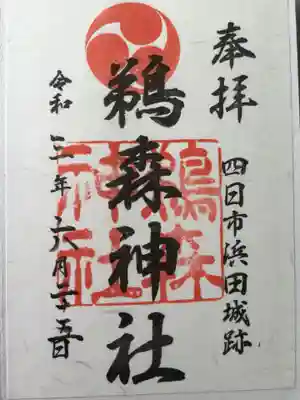 奉拝
四日市浜田城跡
鵜森神社
令和三年六月二十五日
鵜森神社